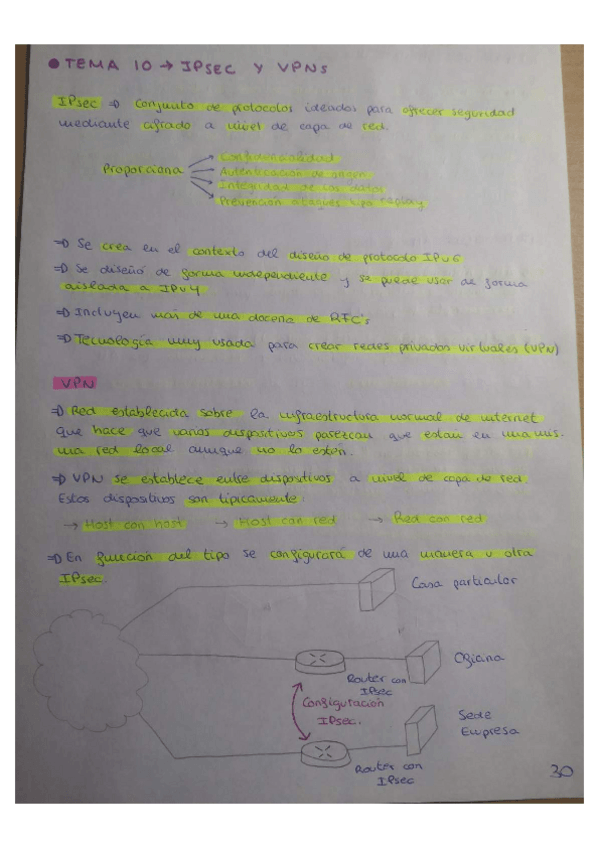 ● TEMA 10 → IPSEC Y VPNs
IPsec ⇒ Conjunto de protocolos ideados para ofrecer seguridad
mediante cifrado a nivel de capa de red.
Proporciona
Confidencialidad
Autenticación de origen
Integridad de los datos
Prevención ataques tipo replay
⇒ Se crea en el contexto del diseño de protocolo IPv6
⇒ Se diseñó de forma independiente y se puede usar de forma
aislada a IPv4
⇒ Incluyen más de una docena de RFC's
⇒ Tecnología muy usada para crear redes privadas virtuales (VPN)
VPN
⇒ Red establecida sobre la infraestructura normal de internet
que hace que varios dispositivos parezcan que estan en una mis-
ma red local aunque no lo estén.
⇒ VPN se establece entre dispositivos a nivel de capa de red.
Estos dispositivos son típicamente:
→ Host con host → Host con red → Red con red
⇒ En función del tipo se configurará de una manera u otra
IPsec.
Casa particular
Oficina
Router con
IPsec
Configuración
IPsec.
Sede
Empresa
Router con
IPsec
30